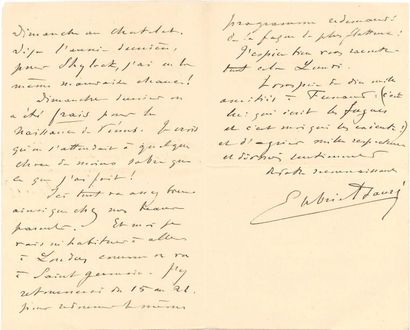 Dimanche au Chatelet.
Déjà l'année dernière,
pour Shylock, j'ai eu la
même mauvaise chance!
Dimanche dernier on
a été frais pour la
Naissance de Vénus. Je crois
qu'on s'attendait à quelque
chose de moins sobre que
ce que j'ai fait!
Ici tout va assez bien
ainsi que chez nos beaux
parents. Et moi je
vais m'habituer à aller
à Londres comme on va
à Saint Germain. J'y
retournerai du 15 au 21.
pour redonner le même
programme redemandé
de la façon la plus flatteuse!
J'espère bien vous raconter
tout cela Lundi.
dix mille
amitiés à Fernand (c'est
lui qui écrit les fugues
et c'est moi qui les )
et d'agréer mille respectueux
et dévoués sentiments
reconnaissant
Gabriel Fauré